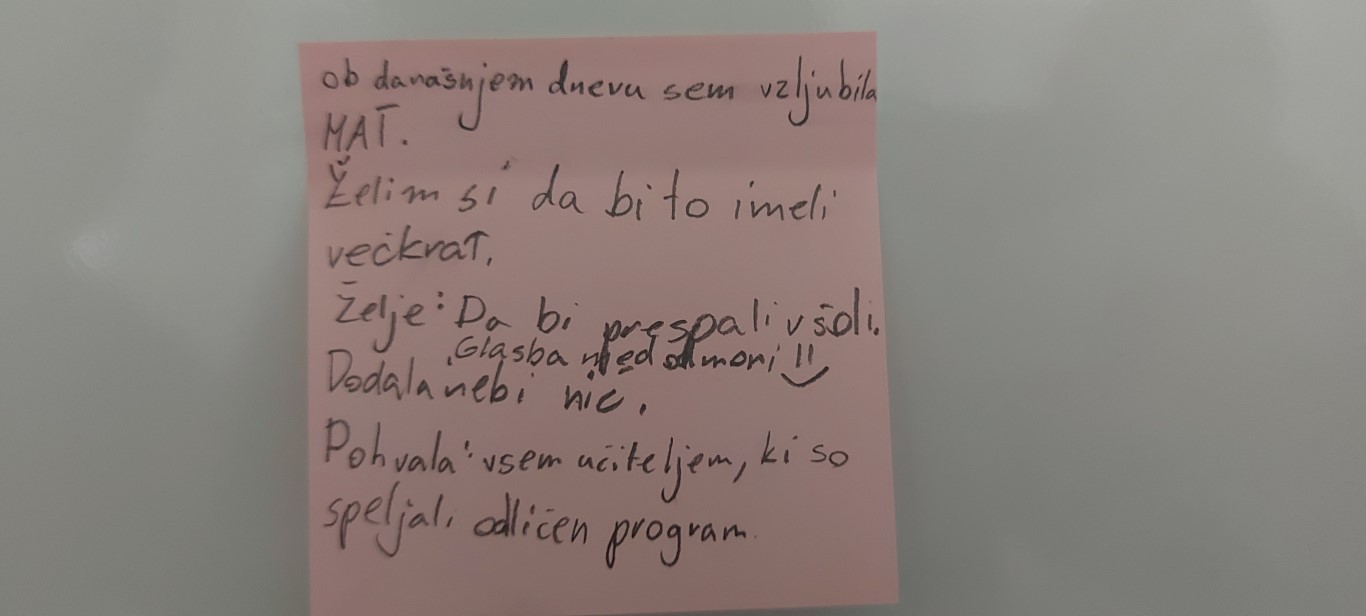 ob današnjem dnevu sem vzljubila
MAT.
Želim si da bi to imeli
večkrat.
Želje: Da bi prespali v šoli.
Glasba med odmori !!
Dodala nebi nič.
Pohvala: vsem učiteljem, ki so
speljali odličen program.